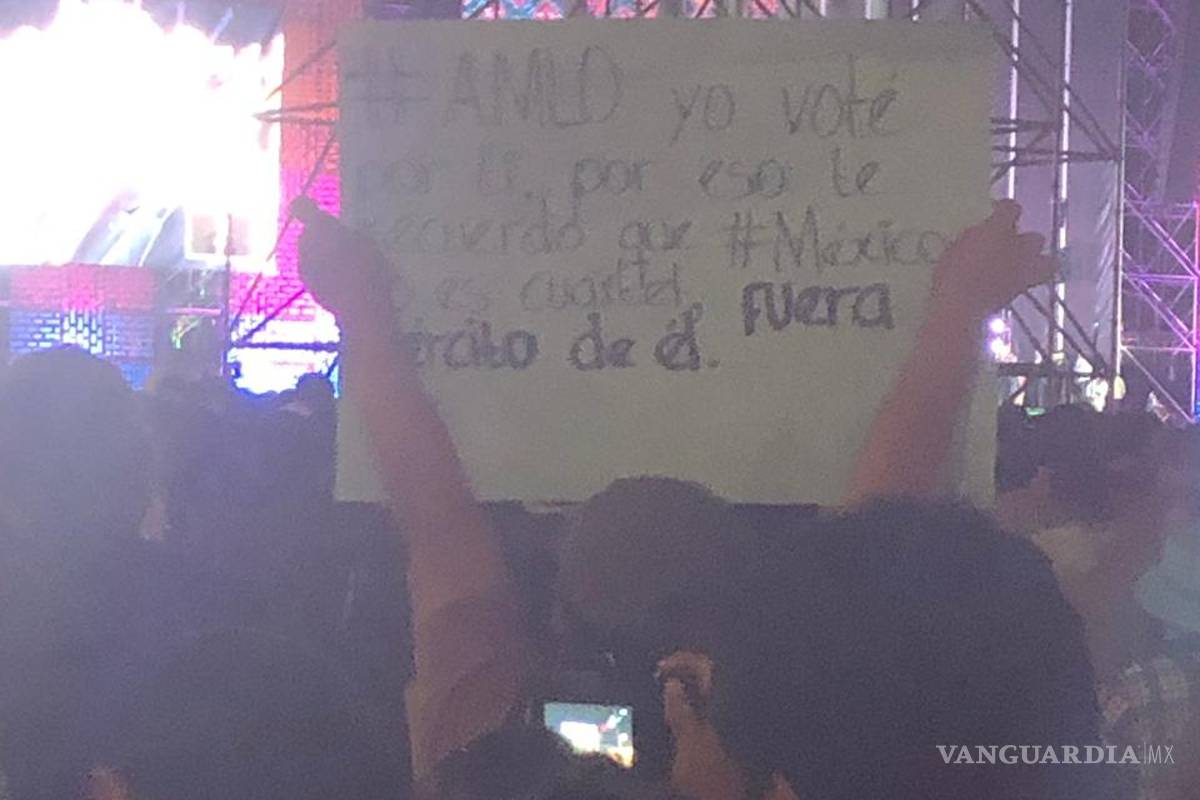 #AMLO yo voté
por ti, por eso te
recuerdo que #México
no es cuartel, fuera
ejército de él.
VANGUARDIA|MX